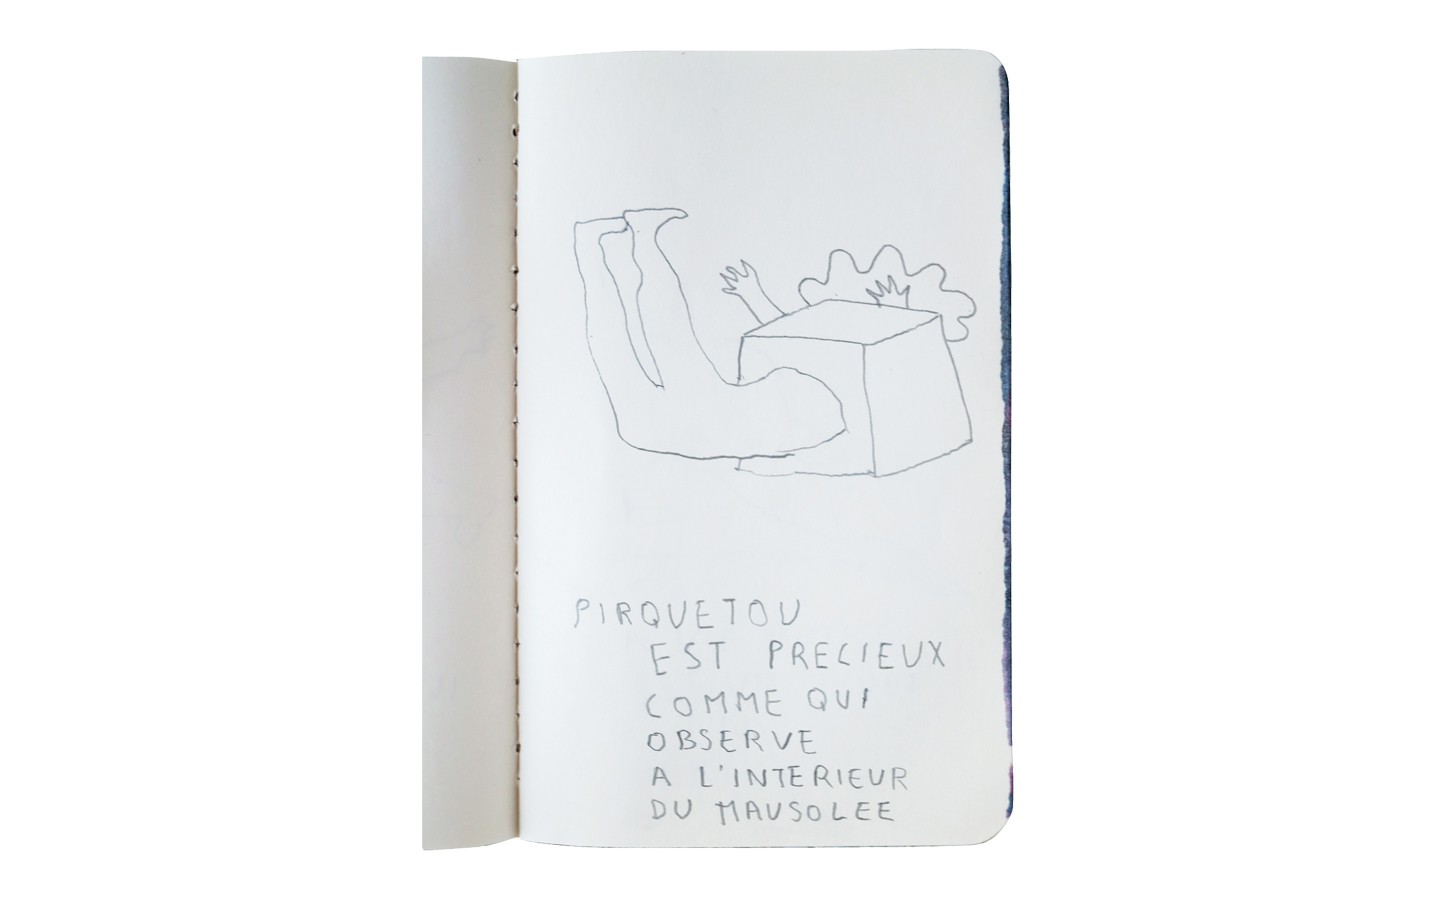 PIRQUETOU
EST PRECIEUX
COMME QUI
OBSERVE
A L'INTERIEUR
DU MAUSOLEE